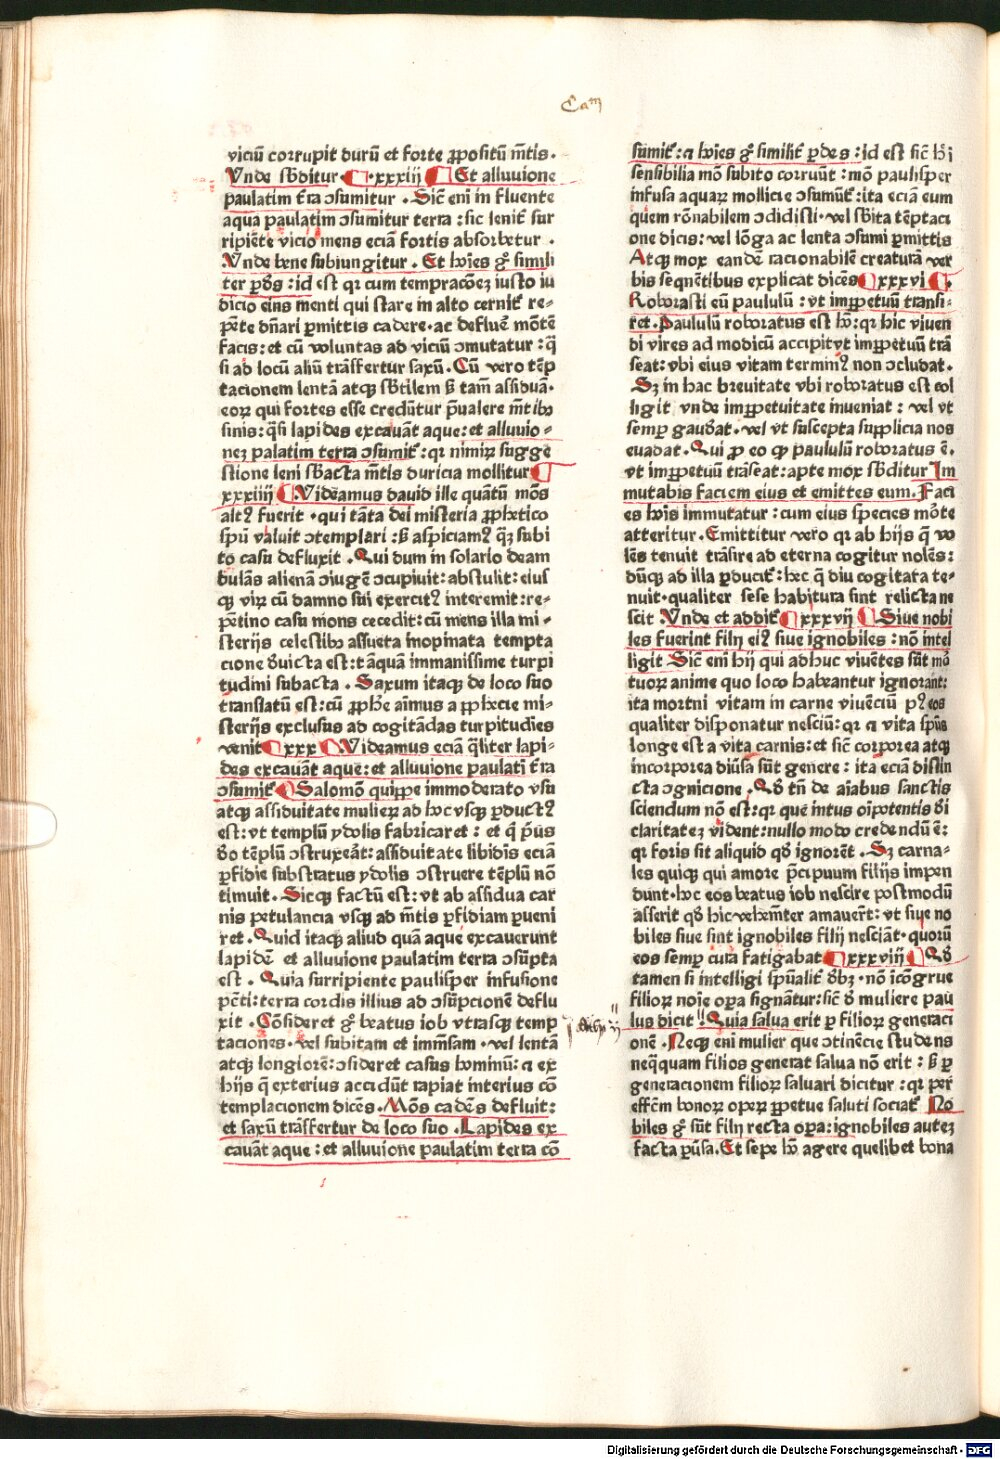 Cam
viciū corrupit durū et forte ꝓpositū mẽtis.
Vnde sb̄ditur. .xxxiij Et alluuione
paulatim t̄ra ↄsumitur . Sic̄ eni in fluente
aqua paulatim ↄsumitur terra : sic lenit̄ sur
ripiẽte vicio mens eciā fortis absorbetur .
Vnde bene subiungitur . Et hoīes gͦ simili
ter ꝑd̄s : id est qꝛ cum tempracōeꝫ iusto iu
dicio eius menti qui stare in alto cernit̄ re⸗
pẽte dn̄ari ꝑmittis cadere. ac defluē mōtē
facis : et cū voluntas ad viciū ↄmutatur : q̄
si ad locū aliū trāsfertur saxū . Cū vero tẽp
tacionem lentā atqꝫ sb̄tilem ß tam̄ assiduā.
eoꝝ qui fortes esse credūtur p̄ualere m̄tibꝰ
sinis : q̄si lapides excauāt aque : et alluuio⸗
neꝫ palatim terra ↄsumit̄ : qꝛ nimiꝝ sugge
stione leni sb̄acta m̄tis duricia mollitur
xxxiiij Videamus dauid ille quātū mōs
altꝰ fuerit . qui tāta dei misteria ꝓphetico
spū valuit ↄtemplari : ß aspiciamꝰ q̄ꝫ subi
to casu defluxit . Qui dum in solario deam
bulās alienā ↄiugē ↄcupiuit : abstulit : eius
qꝫ viꝝ cū damno sui exercitꝰ interemit : re⸗
pẽtino casu mons cecedit : cū mens illa mi⸗
sterijs celestibꝰ assueta inopinata tempta
cione d̄uicta est : t āquā immanissime turpi
tudini subacta . Saxum itaqꝫ de loco suo
translatū est : cū ꝓphe aimus a ꝓphecie mi⸗
sterijs exclusus ad cogitādas turpitudīes
venit xxx Videamus eciā q̄liter lapi⸗
des excauāt aque : et alluuione paulati t̄ra
ↄsumit̄ Salomō quippe immoderato vsu
atqꝫ assiduitate mulieꝝ ad hoc vsqꝫ ꝑductꝰ
est : vt templū ydolis fabricaret : et q̄ p̄us
d̄o tẽplū ↄstruxeāt : assiduitate libidīs eciā
ꝑfidie substratus ydolis ↄstruere tẽplū nō
timuit . Sicqꝫ factū est : vt ab assidua car
nis petulancia vsqꝫ ad m̄tis ꝑfidiam ꝑueni
ret . Quid itaqꝫ aliud quā aque excauerunt
lapidē et alluuione paulatim terra ↄsūpta
est . Quia surripiente paulisper infusione
pc̄ti : terra cordis illius ad ↄsūpcionē deflu
xit . Cōsideret gͦ beatus iob vtrasqꝫ temp
taciones . vel subitam et imm̄sam . vel lentā
atqꝫ longiorē : ↄsideret casus hominū : a ex
hijs q̄ exterius accidūt rapiat interius cō
templacionem dicēs . Mōs cadēs defluit :
et saxū trāsfertur de loco suo . Lapides ex
cauāt aque : et alluuione paulatim terra cō
sumit̄ : a hoīes gͦ similit̄ ꝑdes : id est sic̄ hij
sensibilia mō subito corruūt : mō paulisper
infusa aquaꝝ mollicie ↄsumūt̄ : ita eciā eum
quem rōnabilem ↄdidisti . vel sb̄ita tẽptaci
one dicis : vel lōga ac lenta ↄsumi ꝑmittis
Atqꝫ mox eandē racionabilē creaturā ver
bis seqnētibus explicat dicēs xxxvi .
Roborasti eū paululū : vt imꝑpetuū transi⸗
ret . Paululū roboratus est hō : qꝛ hic viuen
di vires ad modicū accipit vt imꝑpetuū trā
seat : vbi eius vitam terminꝰ non ↄcludat .
Sꝫ in hac breuitate vbi roboratus est col
ligit vnde imꝑpetuitate inueniat : vel vt
semꝑ gaudeat . vel vt suscepta supplicia nos
euadat . Qui ꝓ eo qꝫ paululū roboratus ē .
vt imꝑpetuū trāseat : apte mox sb̄ditur Im
mutabis faciem eius et emittes eum . Faci
es hoīs immutatur : cum eius species mōte
atteritur . Emittitur vero qꝛ ab hijs q̄ vo
lēs tenuit trāsire ad eterna cogitur nolēs :
dūqꝫ ad illa ꝑducit̄ : hec q̄ diu cogitata te⸗
nuit . qualiter sese habitura sint relicta ne
scit . Vnde et addit̄ xxxvij Siue nobi
les fuerint filij eiꝰ siue ignobiles : nō intel
ligit Sic̄ eni hij qui adhuc viuētes sūt mō
tuoꝝ anime quo loco habeantur ignorant :
ita mortni vitam in carne viuēciū pꝰ eos
qualiter disponatur nesciū : qꝛ a vita spūs
longe est a vita carnis : et sic̄ corporea atqꝫ
incorporea diūsa sūt genere : ita eciā distin
cta ↄgnicione . Qd̄ tn̄ de aīabus sanctis
sciendum nō est : qꝛ que intus oīpotentis d̄i
claritateꝫ vident : nullo modo credendū ē :
qꝛ foris sit aliquid qd̄ ignorēt . Sꝫ carna⸗
les quiqꝫ qui amore p̄cipuum filijs impen
dunt . hoc eos beatus iob nescire postmodū
asserit qd̄ hic vehem̄ter amauert̄ : vt siue no
biles siue sint ignobiles filij nesciāt . quorū
eos semꝑ cura fatigabat xxxviij Qd̄
tamen si intelligi spūalit̄ d̄bꝫ . nō icōgrue
filioꝝ noīe oꝑa signātur : sic̄ d̄ muliere pau
lus dicit Quia salua erit ꝑ filioꝝ generaci
onē . Neqꝫ eni mulier que ↄtinēcie studens
neq̄quam filios generat salua nō erit : ß ꝑ
generacionem filioꝝ saluari dicitur : qꝛ per
effc̄m bonoꝝ opeꝝ ꝑpetue saluti sociat̄ No
biles gͦ sūt filij recta oꝑa : ignobiles auteꝫ
facta pūsa . Et sepe hō agere quelibet bona
Digitalisierung gefördert durch die Deutsche Forschungsgemeinschaft - DFG